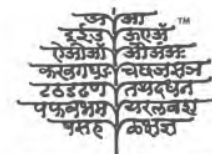 अ आ ™
इ ई उ ऊ ए ऐ
ऐ ओ ऑ औ अं अः
क ख ग घ ङ च छ ज झ ञ
ट ठ ड ढ ण त थ द ध न
प फ ब भ म य र ल व श
ष स ह ळ क्ष ज्ञ